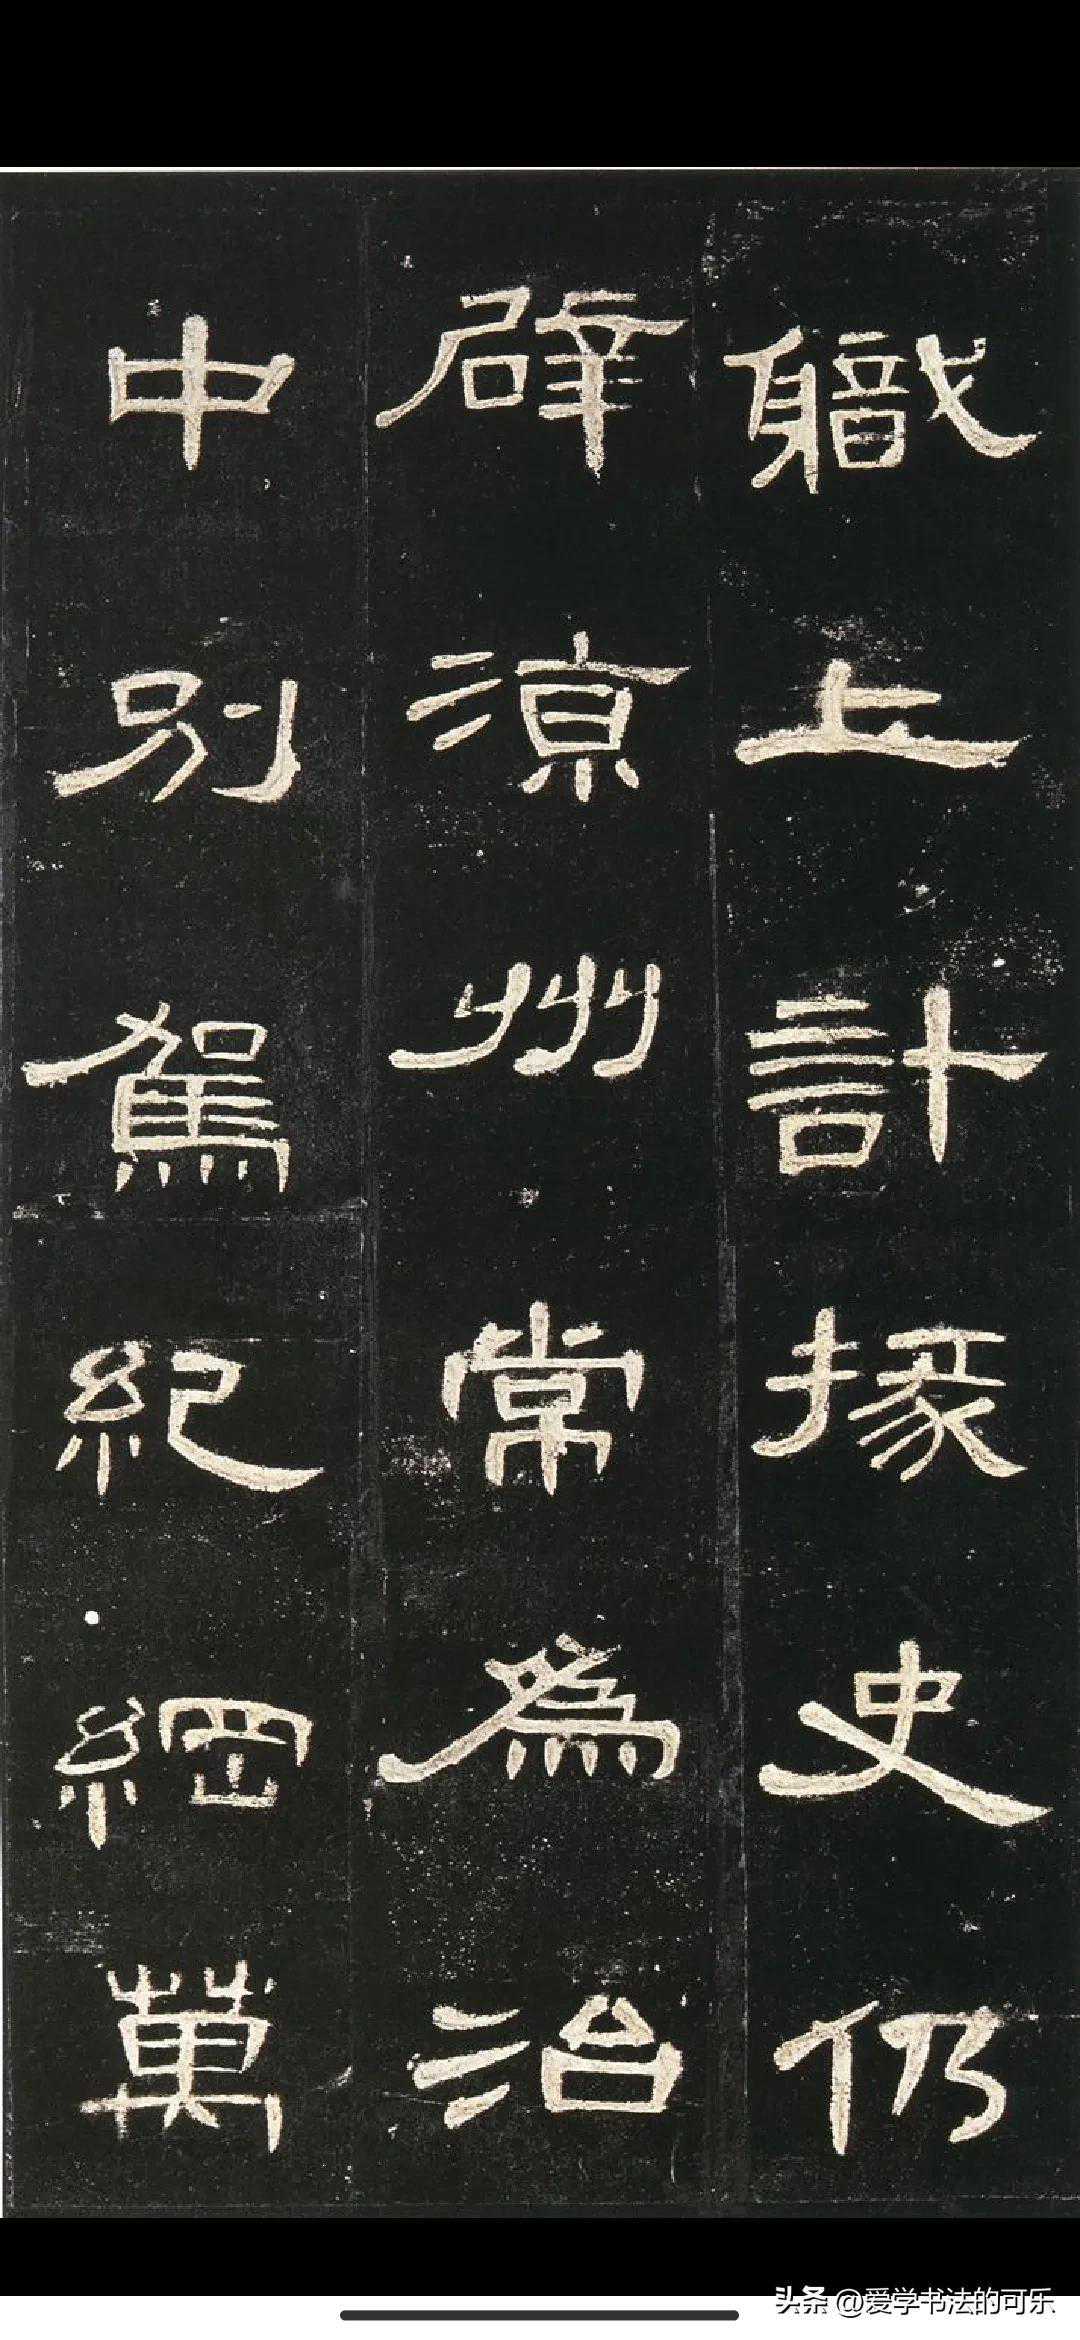 職上計掾史仍
辟涼州常為治
中別駕紀綱萬
头条 @爱学书法的可乐